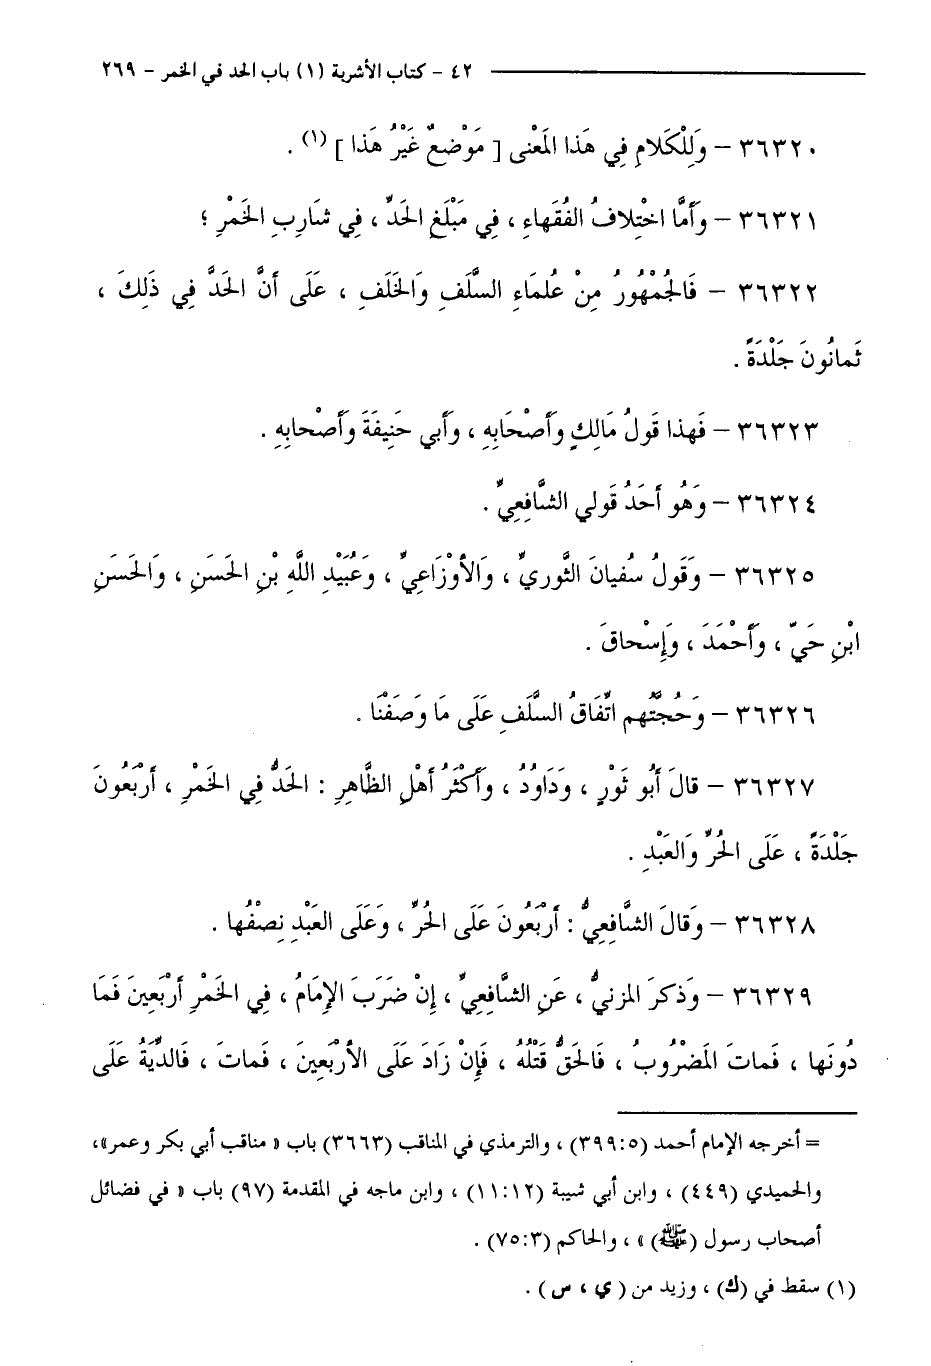 ٤٢ - كتاب الأشربة (١) باب الحد في الخمر - ٢٦٩
٣٦٣٢٠ - وَلِلْكَلامِ فِي هَذا المَعْنى [ مَوْضعٌ غَيْرُ هَذا ] (١) .
٣٦٣٢١ - وَأَمَّا اخْتِلافُ الفُقَهاءِ ، فِي مَبْلَغِ الحَدِّ ، فِي شَارِبِ الخَمْرِ ؛
٣٦٣٢٢ - فَالجُمْهُورُ مِنْ عُلمَاءِ السَّلَفِ وَالخَلَفِ ، عَلَى أَنَّ الحَدَّ فِي ذَلِكَ ،
ثَمانُونَ جَلْدَةً .
٣٦٣٢٣ - فَهذا قَولُ مَالِكٍ وَأَصْحَابِهِ ، وَأَبي حَنِيفَةَ وَأَصْحابِهِ .
٣٦٣٢٤ - وَهُو أَحَدُ قَولي الشَّافِعِيِّ .
٣٦٣٢٥ - وَقَولُ سُفيانَ الثَّوريِّ ، وَالأَوْزَاعِيِّ ، وَعُبَيْدِ اللَّهِ بْنِ الحَسَنِ ، وَالحَسَنِ
ابْنِ حَيٍّ ، وَأَحْمَدَ ، وَإِسْحاقَ .
٣٦٣٢٦ - وَحُجَّتُهم اتِّفَاقُ السَّلَفِ عَلَى مَا وَصَفْنَا .
٣٦٣٢٧ - قالَ أَبُو ثَوْرٍ ، وَدَاوُدُ ، وَأَكْثَرُ أَهْلِ الظَّاهِرِ : الحَدُّ فِي الخَمْرِ ، أَرْبَعُونَ
جَلْدَةً ، عَلَى الحُرِّ وَالعَبْدِ .
٣٦٣٢٨ - وَقالَ الشَّافِعِيُّ : أَرْبَعُونَ عَلَى الحُرِّ ، وَعَلَى العَبْدِ نِصْفُها .
٣٦٣٢٩ - وَذكرَ المزنيُّ ، عَنِ الشَّافِعِيِّ ، إِنْ ضَرَبَ الإِمَامُ ، فِي الخَمْرِ أَرْبَعِينَ فَمَا
دُونَها ، فَماتَ المَضْرُوبُ ، فَالحَقُّ قَتْلُهُ ، فَإِنْ زَادَ عَلَى الأَرْبَعِينَ ، فَماتَ ، فَالدِّيَةُ عَلَى
= أخرجه الإمام أحمد (٣٩٩:٥) ، والترمذي في المناقب (٣٦٦٣) باب « مناقب أبي بكر وعمر»،
والحميدي (٤٤٩) ، وابن أبي شيبة (١١:١٢) ، وابن ماجه في المقدمة (٩٧) باب « في فضائل
أصحاب رسول (ﷺ) » ، والحاكم (٧٥:٣) .
(١) سقط في (ك) ، وزيد من ( ي ، س ) .